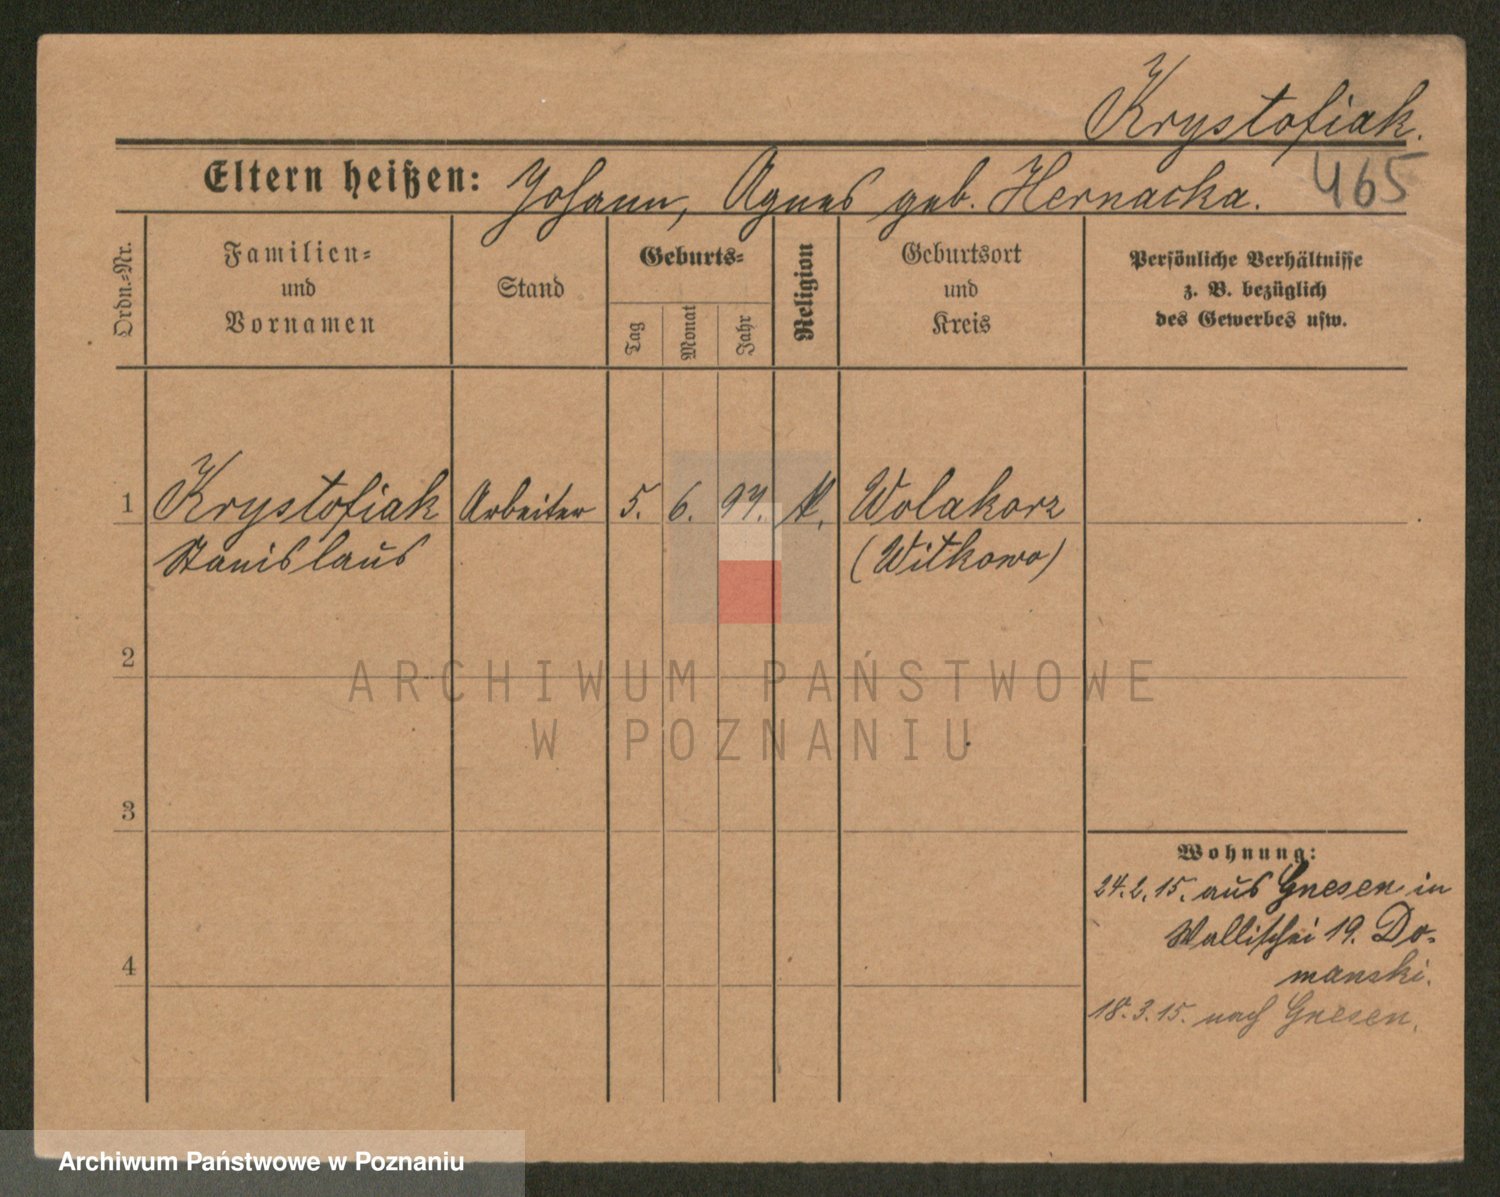 Krystofiak.
465
Eltern heißen: Johann, Agnes geb. Hernacka.
Ordn.-Nr.
Familien-
und
Vornamen
Stand
Geburts-
Tag
Monat
Jahr
Religion
Geburtsort
und
Kreis
Persönliche Verhältnisse
z. B. bezüglich
des Gewerbes usw.
1 Krystofiak Arbeiter 5. 6. 97. k. Wolakorz
Stanislaus (Witkowo)
2
3
4
Wohnung:
24.2.15. aus Gnesen in
Wallischei 19. Do-
manski.
18.3.15. nach Gnesen.
ARCHIWUM PAŃSTWOWE
W POZNANIU
Archiwum Państwowe w Poznaniu